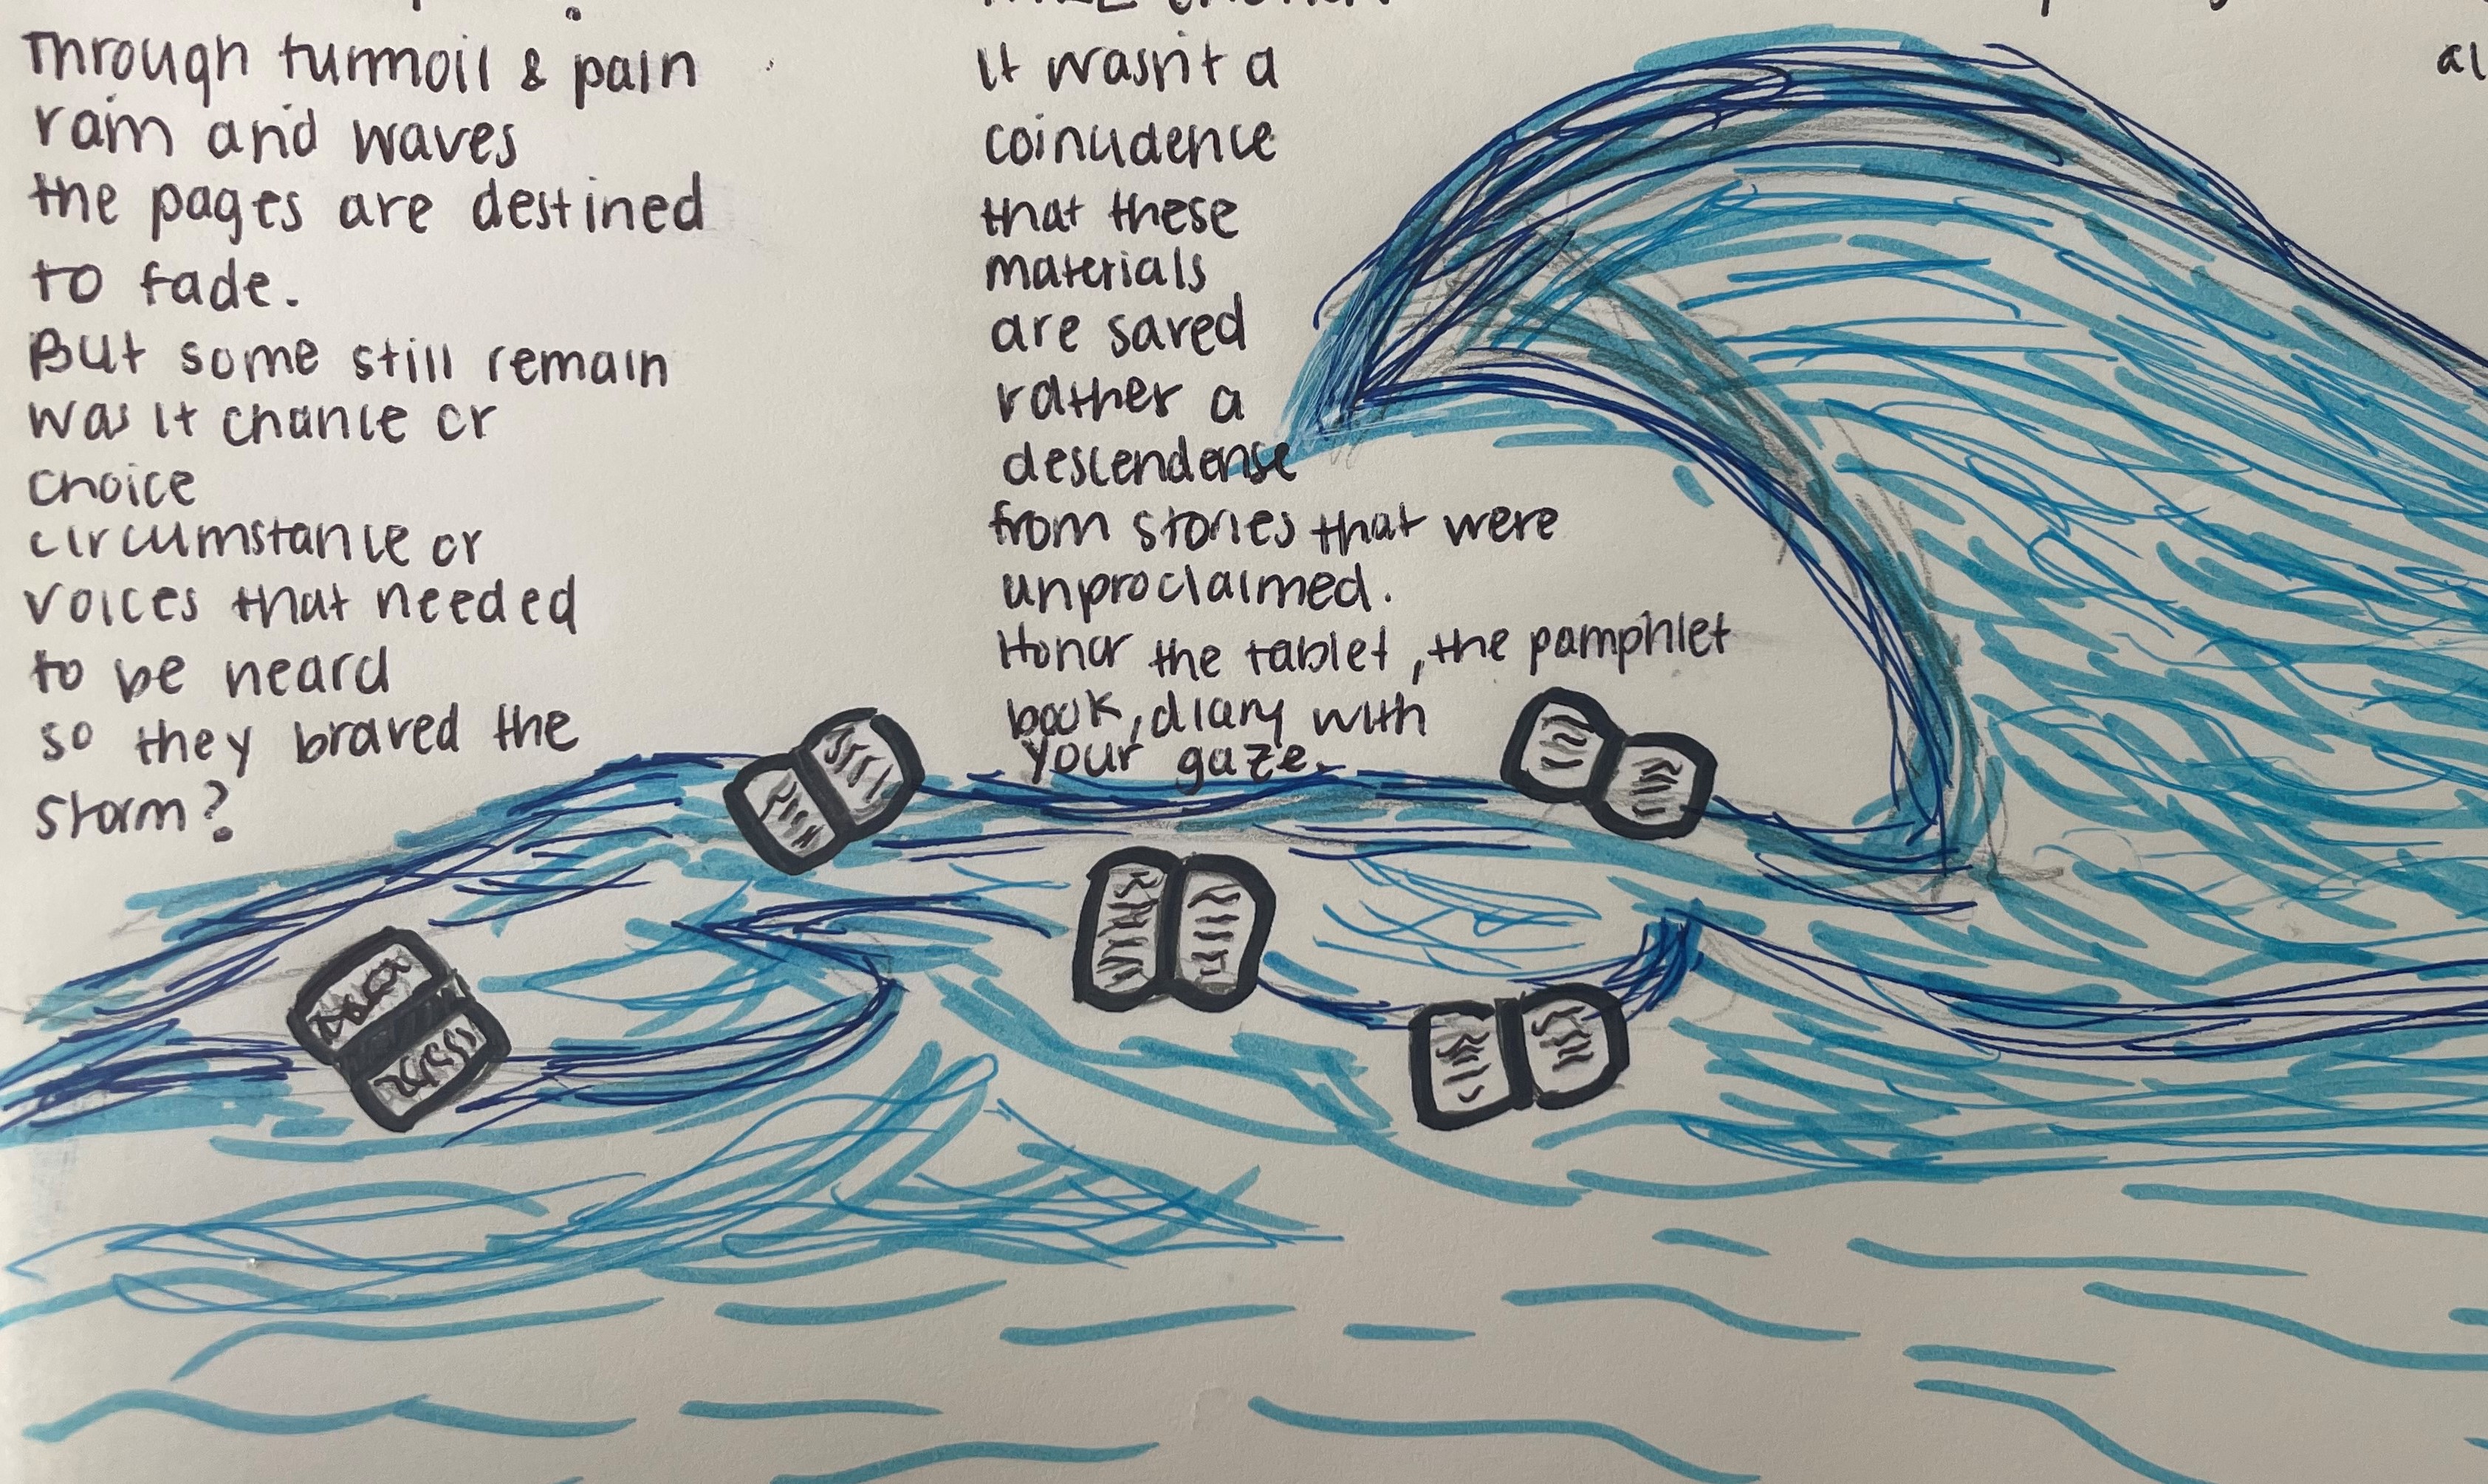 Through turmoil & pain
rain and waves
the pages are destined
to fade.
But some still remain
was it chance or
choice
circumstance or
voices that needed
to be heard
so they braved the
storm?
it wasn't a
coincidence
that these
materials
are saved
rather a
descendense
from stories that were
unproclaimed.
Honor the tablet, the pamphlet
book, diary with
your gaze.
al